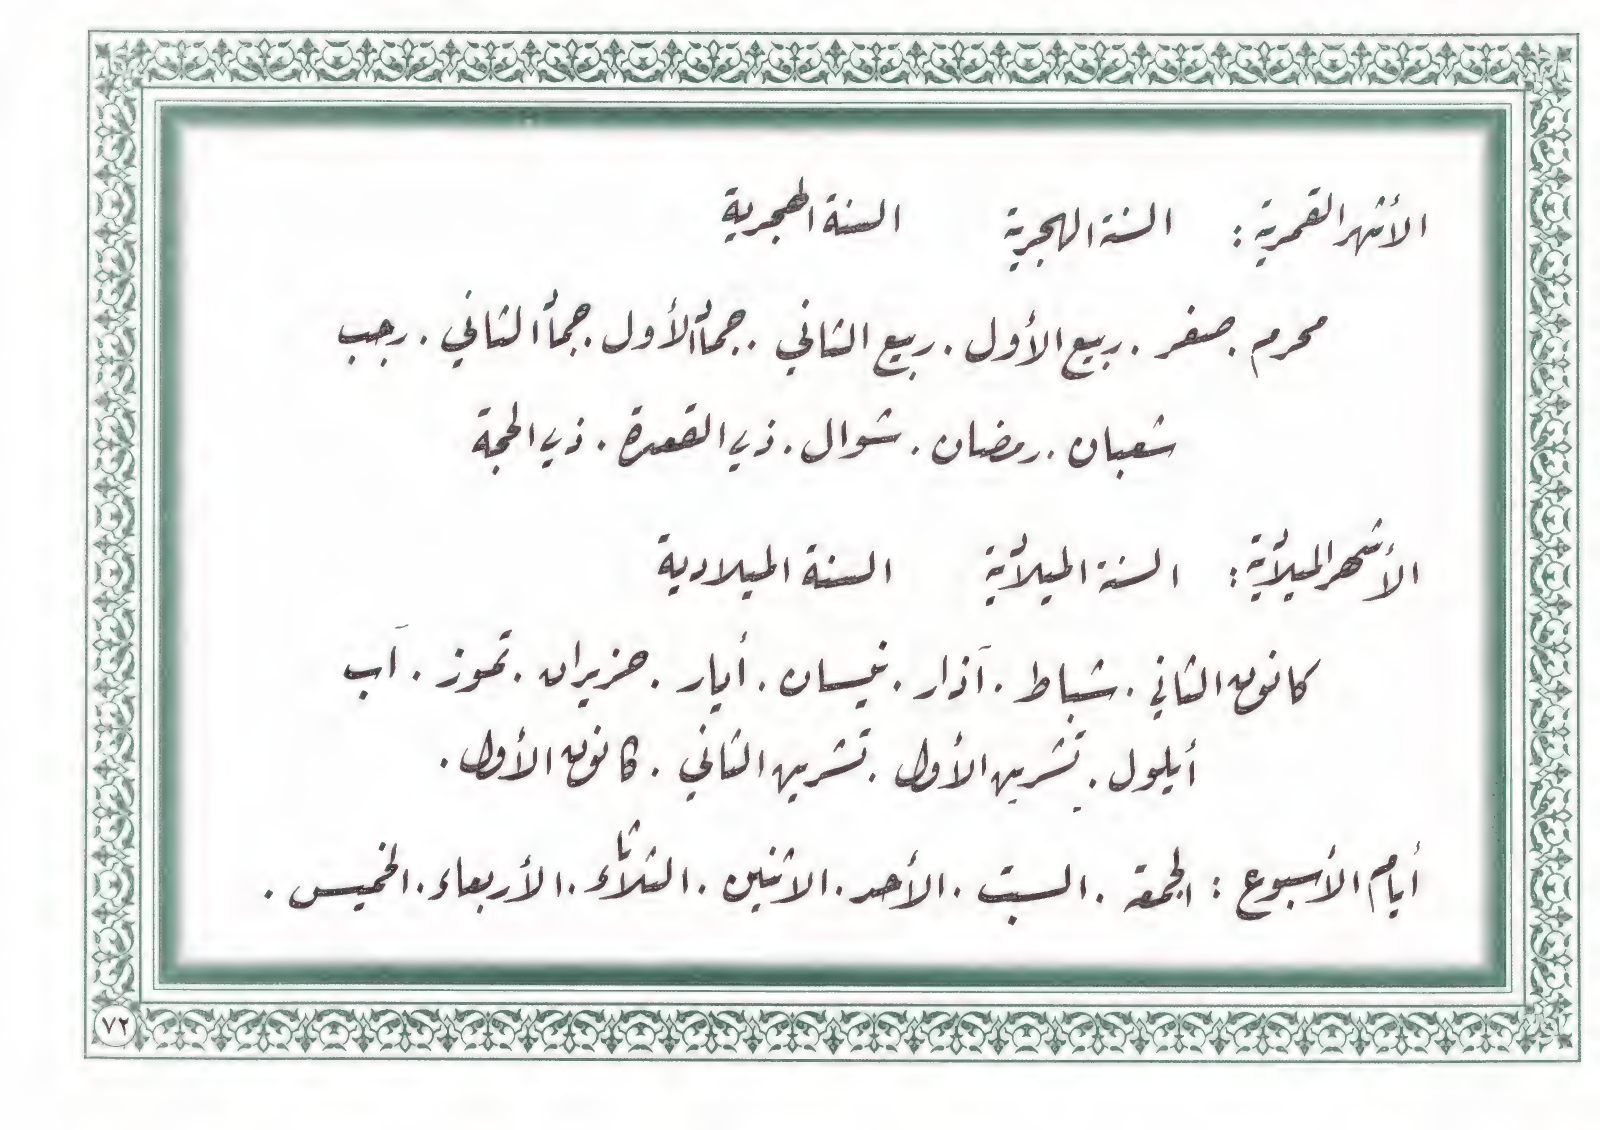 الأشهر القمرية : السنة الهجرية السنة الهجرية
محرم . صفر . ربيع الأول . ربيع الثاني . جمادى الأول . جمادى الثاني . رجب
شعبان . رمضان . شوال . ذي القعدة . ذي الحجة
الأشهر الميلادية : السنة الميلادية السنة الميلادية
كانون الثاني . شباط . آذار . نيسان . أيار . حزيران . تموز . آب
أيلول . تشرين الأول . تشرين الثاني . كانون الأول .
أيام الأسبوع : الجمعة . السبت . الأحد . الاثنين . الثلاثاء . الأربعاء . الخميس .
٧٢